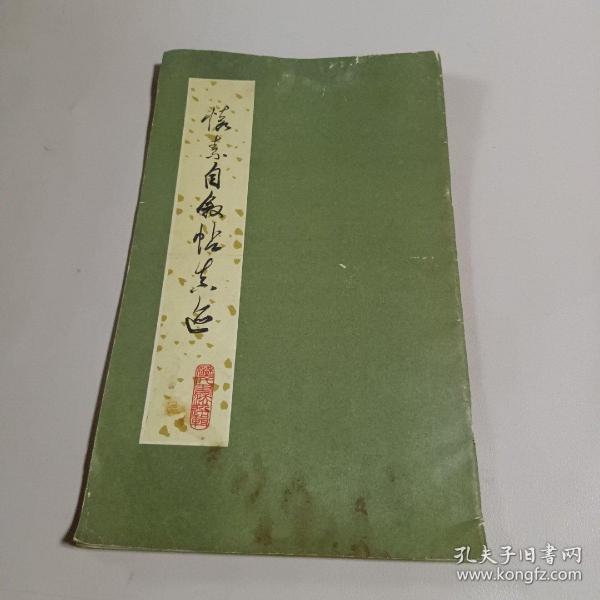 懷素自叙帖真迹
孔夫子旧書网
www.kongfz.com